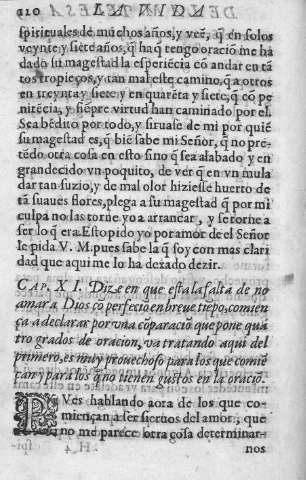 210
spirituales de muchos años, y veẽ, q̃ en solos
veynte y siete años, q̃ ha q̃ tengo oracio me ha
dado su magestad la esperiẽcia cõ andar en tã
tos tropieços, y tan mal este camino, q̃ a otros
en treynta y siete, y en quarẽta y siete, q̃ cõ pe
nitẽcia, y siẽpre virtud han caminado por el.
Sea bẽdito por todo, y siruase de mi por quiẽ
su magestad es, q̃ biẽ sabe mi Señor, q̃ no pre-
tẽdo otra cosa en esto sino q̃ sea alabado y en
grandecido vn poquito, de ver q̃ en vn mula
dar tan suzio, y de mal olor hiziesse huerto de
tã suaues flores, plega a su magestad q̃ por mi
culpa no las torne yo a arrancar, y se torne a
ser lo q̃ era. Esto pido yo por amor de el Señor
le pida V. M. pues sabe la q̃ soy con mas clari
dad que aqui me lo ha dexado dezir.
CAP. XI. Dize en que esta la falta de no
amar a Dios cõ perfecio en breue tiẽpo, comien
ça a declarar por vna cõparaciõ que pone qua
tro grados de oracion, va tratando aqui del
primero, es muy prouechoso para los que comiẽ
çan y para los q̃ no tienen gustos en la oraciõ.
PVes hablando aora de los que co-
miençan a ser sieruos del amor, que
no me parece otra cosa determinar-
nos